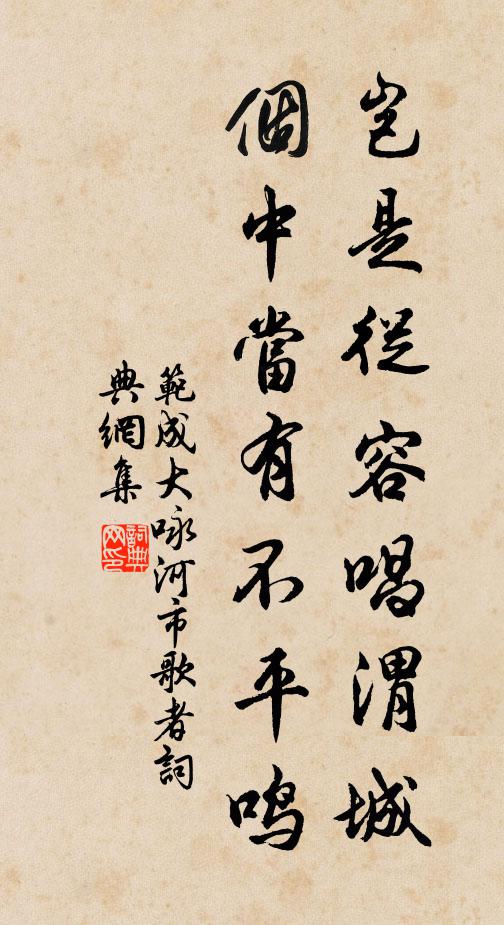 豈是從容唱渭城
個中當有不平鳴
範成大咏河市歌者詞
典網集
詞典
网印